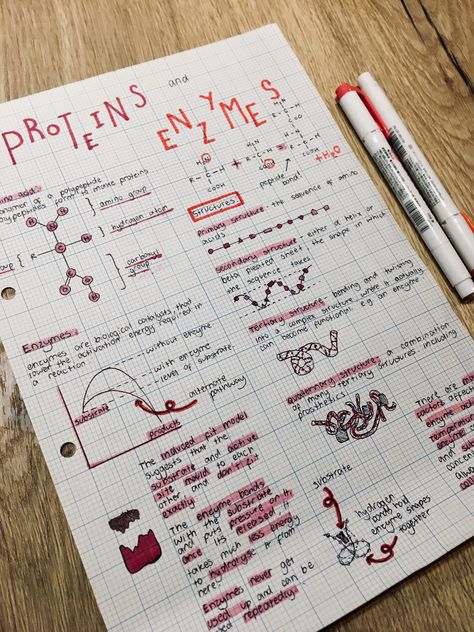 PROTEINS and
ENZYMES
amino acid:
monomer of a polypeptide
polypeptides form make proteins
amino group
hydrogen atom
R
carboxyl
group
H₂N H
C
R COOH
+
+ H₂O
peptide
bond
Structures:
primary structure - the sequence of amino
acids
secondary structure - either α helix or
beta pleated sheet the shape in which
the sequence takes
Tertiary structure - bonding and twisting
into a complex structure where it actually
can become functional e.g. an enzyme
Quaternary structure - a combination
of many tertiary structures including
prosthetics.
Enzymes
enzymes are biological catalysts that
lower the activation energy required in
a reaction
without enzyme
with enzyme
level of substrate
alternate
pathway
substrate
products
The induced fit model
suggests that the
substrate and active
site mould to each
other and don't fit
exactly
The enzyme bonds
with the substrate
and puts pressure on it,
once it's released it
takes much less energy
to hydrolyse it from
Enzymes never get
used up and can be
used repeatedly!
substrate
hydrogen
bonds fold
enzyme shapes
together
There are
factors affect
enzyme
temperature
enzyme
and
substrate
concen